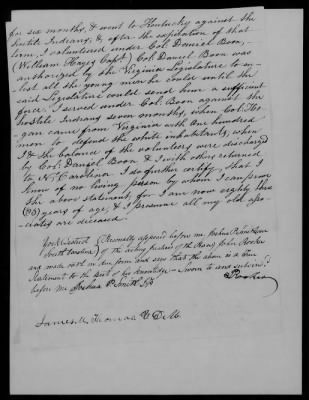 for six months, & went to Kentucky against the
hostile Indians, & after the expiration of that
term, I volunteered under Col. Daniel Boon,
(William Hays Capt) Col. Daniel Boon was
authorized by the Virginia Legislature to en-
list all the young men he could until the
said Legislature could send him a sufficient
force I served under Col. Boon against the
hostile Indians seven months, when Col.
came from Virginia with one hundred
men to defend the white inhabitants, when
I & the balance of the volunteers were discharged
by Col. Daniel Boon & I with others returned
to N. Carolina I do further certify, that I
know of no living person by whom I can prove
the above statement, for I am now eighty three
years of age, & I presume all my old
are deceased
York District (Personally appeared before me Joshua
South Carolina) John Rooker
and made oath in due form and says that the above is a true
statement to the best of his knowledge – Sworn to and subscribed
before me Joshua Smith Rooker
James